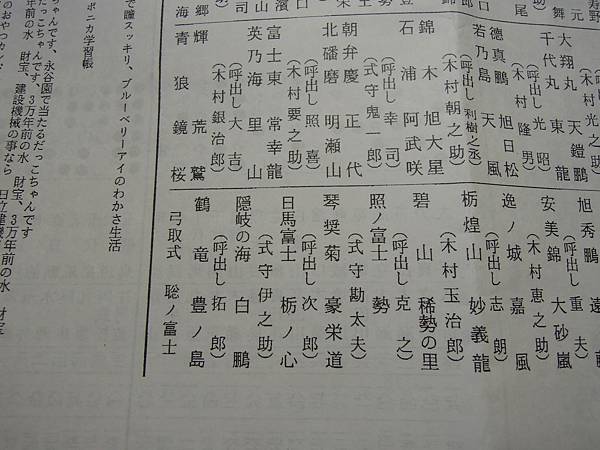 大翔丸 天鎧鵬
(呼出し 光昭)
千代丸 東龍
(木村隆男)
徳真鵬 旭日松
(呼出し 利樹之丞)
若乃島 天風
(木村朝之助)
錦木 旭大星
(呼出し 幸司)
石浦 阿武咲
(式守鬼一郎)
朝弁慶 正代
(呼出し 照喜)
北磻磨 明瀬山
(木村要之助)
富士東 常幸龍
(呼出し 大吉)
英乃海 里山
(木村銀治郎)
輝 荒鷲
青狼 鏡桜
旭秀鵬 遠藤
(呼出し 重夫)
安美錦 大砂嵐
(木村恵之助)
逸ノ城 嘉風
(呼出し 志朗)
栃煌山 妙義龍
(木村玉治郎)
碧山 稀勢の里
(呼出し 克之)
照ノ富士 勢
(式守勘太夫)
琴奨菊 豪栄道
(呼出し 次郎)
日馬富士 栃ノ心
(式守伊之助)
隠岐の海 白鵬
(呼出し 拓郎)
鶴竜 豊ノ島
弓取式 聡ノ富士
で瞳スッキリ、ブルーベリーアイのわかさ生活
ポニカ学習帳
ちゃんです、永谷園で当たるだっこちゃんです
だっこちゃんです、3万年前の水 財宝、3万年前の水
年前の水 財宝、建設機械の事なら 日立建機